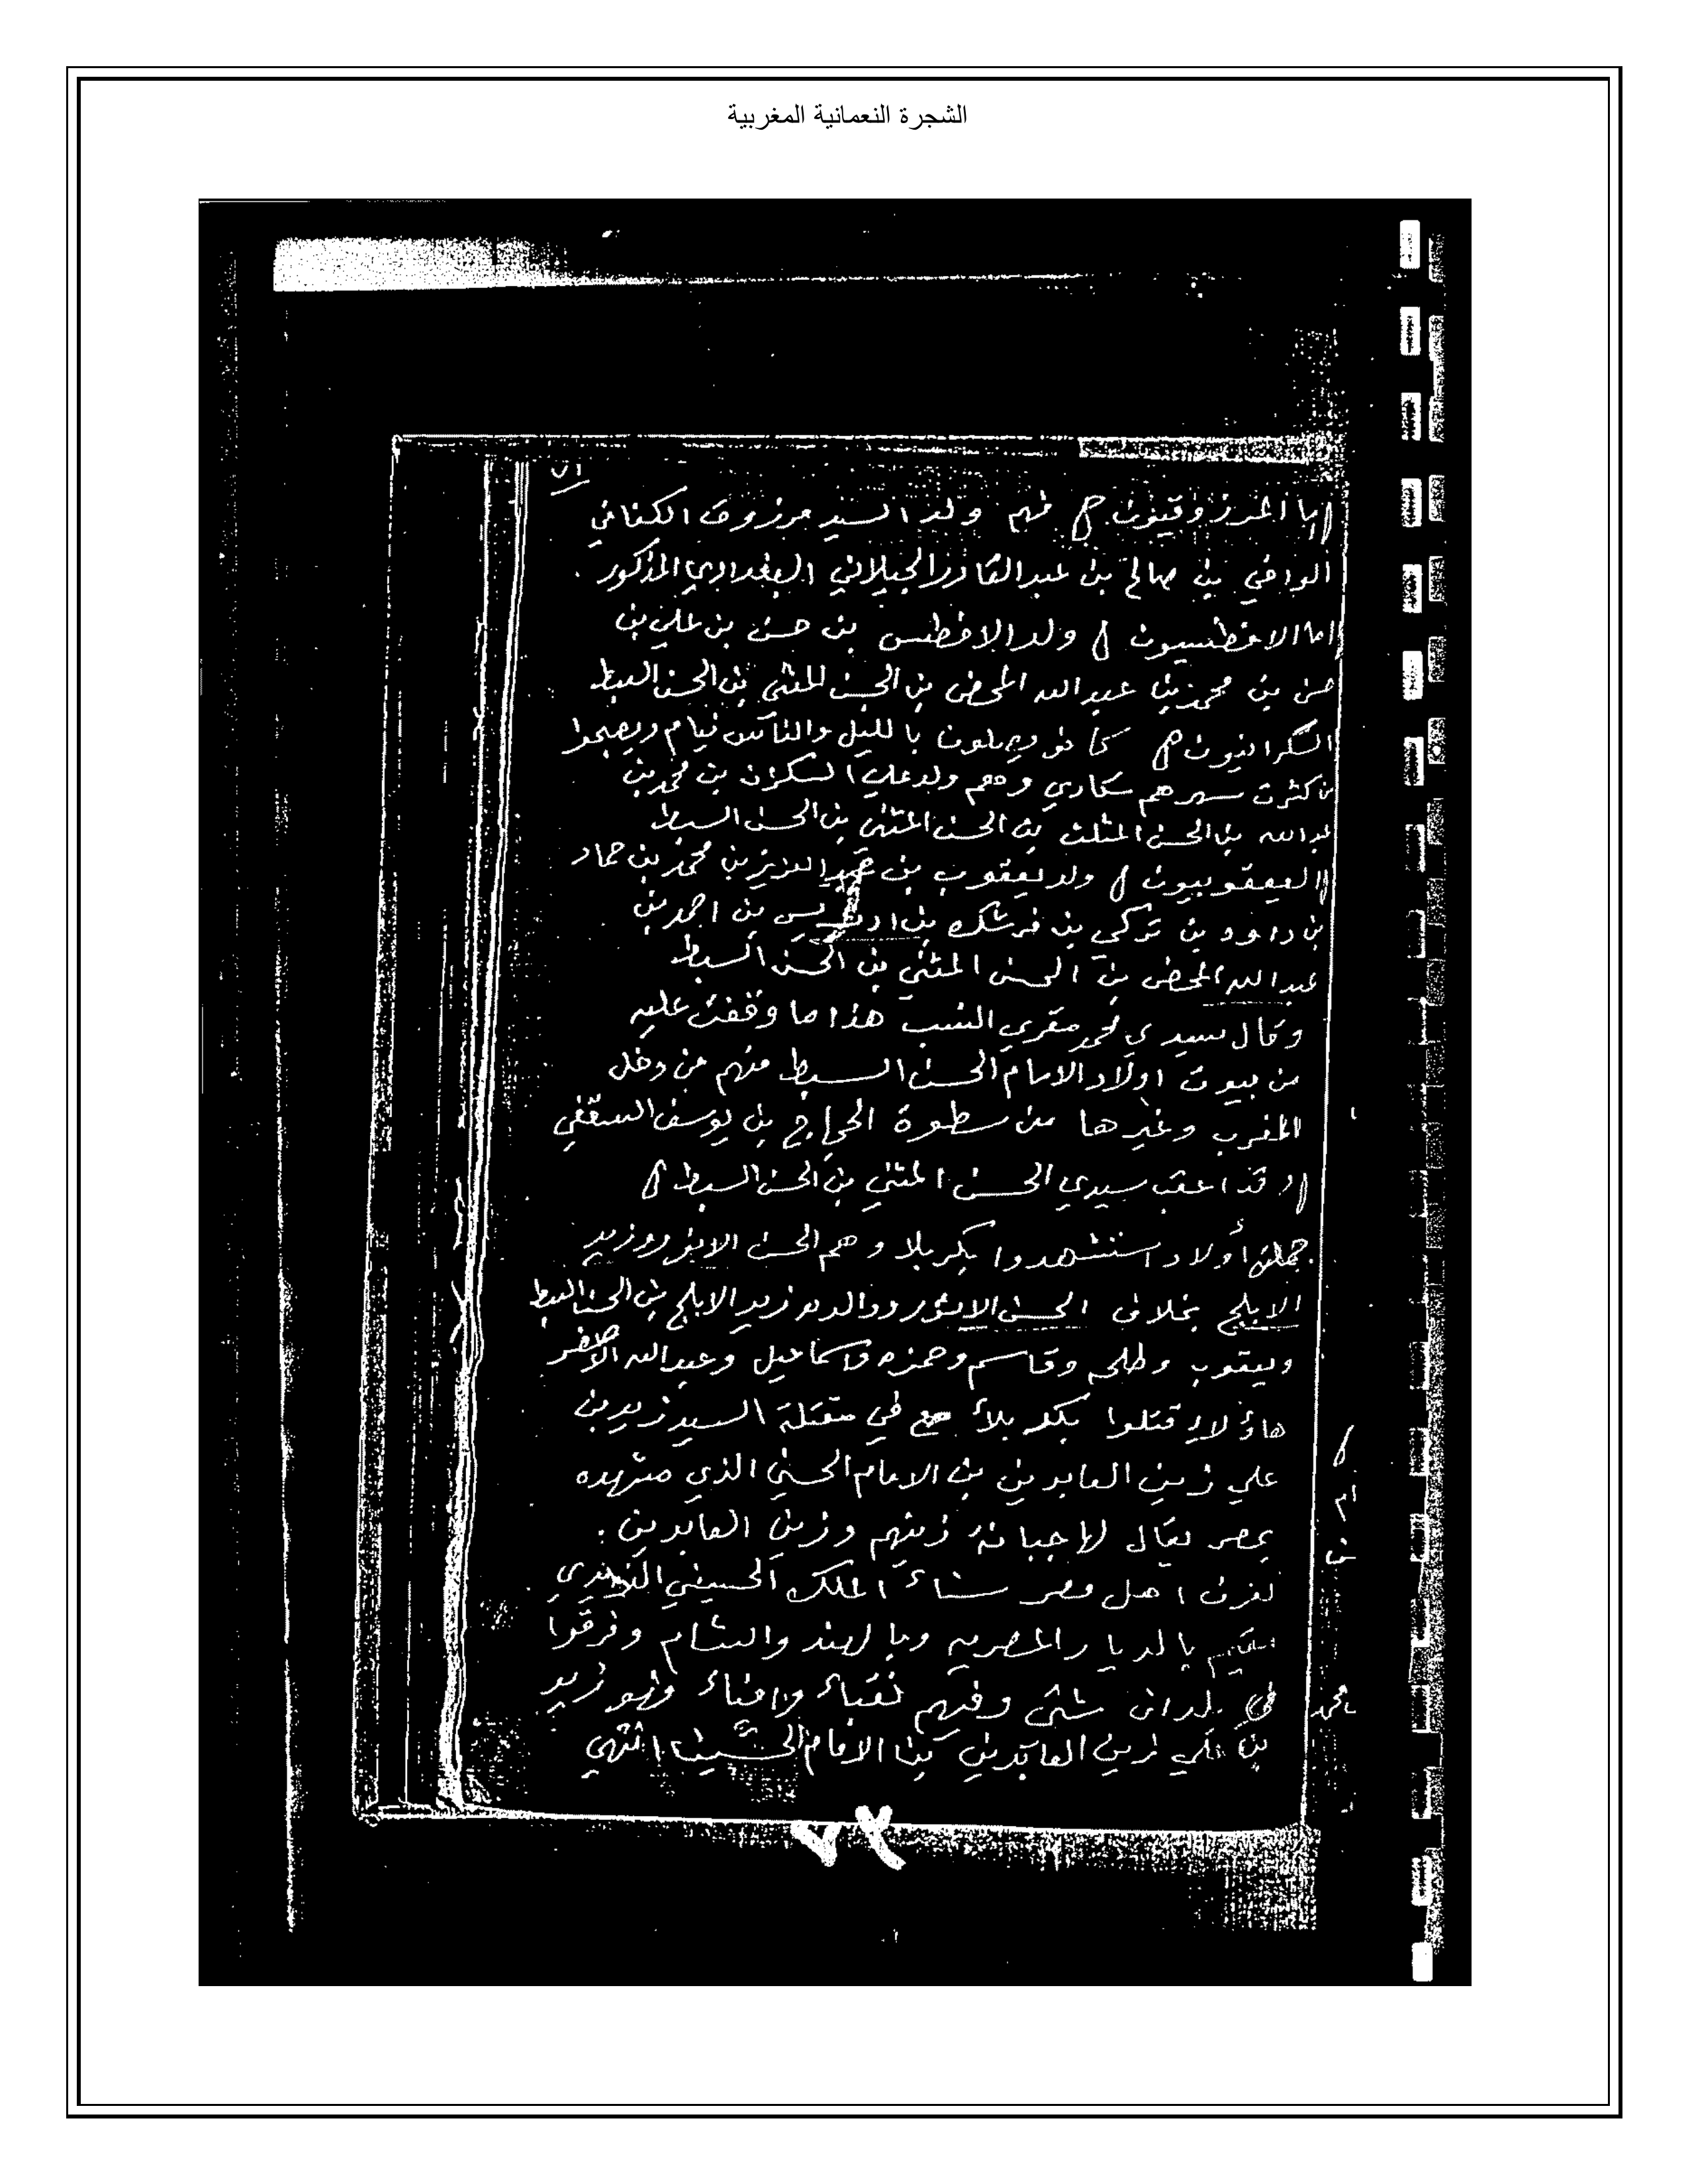 الشجرة النعمانية المغربية
٧١
اما المرزوقيون فهم ولد السيد مرزوق الكفافي
الوافي بن صالح بن عبدالقادر الجيلاني البغدادي المذكور
اما الافطسيون ولد الافطس بن حسن بن علي بن
حسن بن محمد بن عبدالله المحض بن الحسن المثني بن الحسن السبط
السكرانيون كانو يصلون بالليل والناس نيام ويصبحوا
من كثرت سهرهم سكاري وهم ولد علي السكران بن محمد بن
عبدالله بن الحسن المثلث بن الحسن المثني بن الحسن السبط
اليعقوبيون ولد يعقوب بن عبدالعزيز بن محمد بن حماد
بن داوود بن تركي بن قرشك بن ادريس بن احمد بن
عبدالله المحض بن الحسن المثني بن الحسن السبط
وقال سيدي محمد مقري النسب هذا ما وقفت عليه
من بيوت اولاد الامام الحسن السبط منهم من دخل
المغرب وغيرها من سطوة الحجاج بن يوسف السقفي
وقد اعقب سيدي الحسن المثني بن الحسن السبط
جملت أولاد استشهدوا بكربلا وهم الحسن الانور وزيد
الابلج بخلاف الحسن الانور ووالده زيد الابلج بن الحسن السبط
ويعقوب وطلحه وقاسم وحمزه واسماعيل وعبدالله الاصفر
هاؤلاء قتلوا بكربلأ في مقتلة السيد زيد بن
علي زين العابدين بن الامام الحسني الذي مشهده
بمصر يقال لها جبانة زينهم وزين العابدين
اهل مصر سناء الملك الحسيني
بالديار المصريه وبالهند والشام وفرقوا
في بلدان شتى وفيهم نقباء زيد
بن علي زين العابدين بن الامام الحسين انتهي
محمد
٧٢